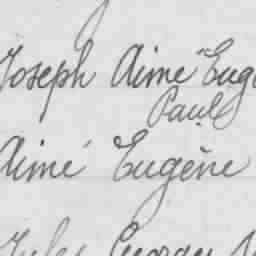 Joseph Aimé Eug
Paul
Aimé Eugène
Jules Georges